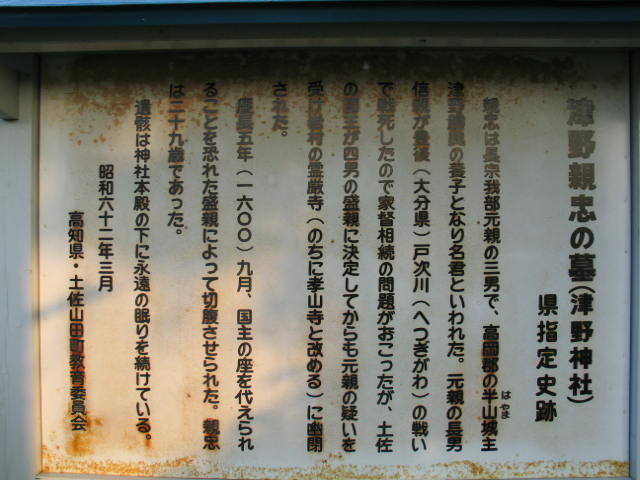 津野親忠の墓(津野神社)
県指定史跡
親忠は長宗我部元親の三男で、高岡郡の半山城主
はやま
津野勝興の養子となり名君といわれた。元親の長男
信親が豊後(大分県)戸次川(へつぎがわ)の戦い
で戦死したので家督相続の問題がおこったが、土佐
の国主が四男の盛親に決定してからも元親の疑いを
受け岩村の霊厳寺(のちに孝山寺と改める)に幽閉
された。
慶長五年(一六〇〇)九月、国主の座を代えられ
ることを恐れた盛親によって切腹させられた。親忠
は二十九歳であった。
遺骸は神社本殿の下に永遠の眠りを続けている。
昭和六十二年三月
高知県・土佐山田町教育委員会